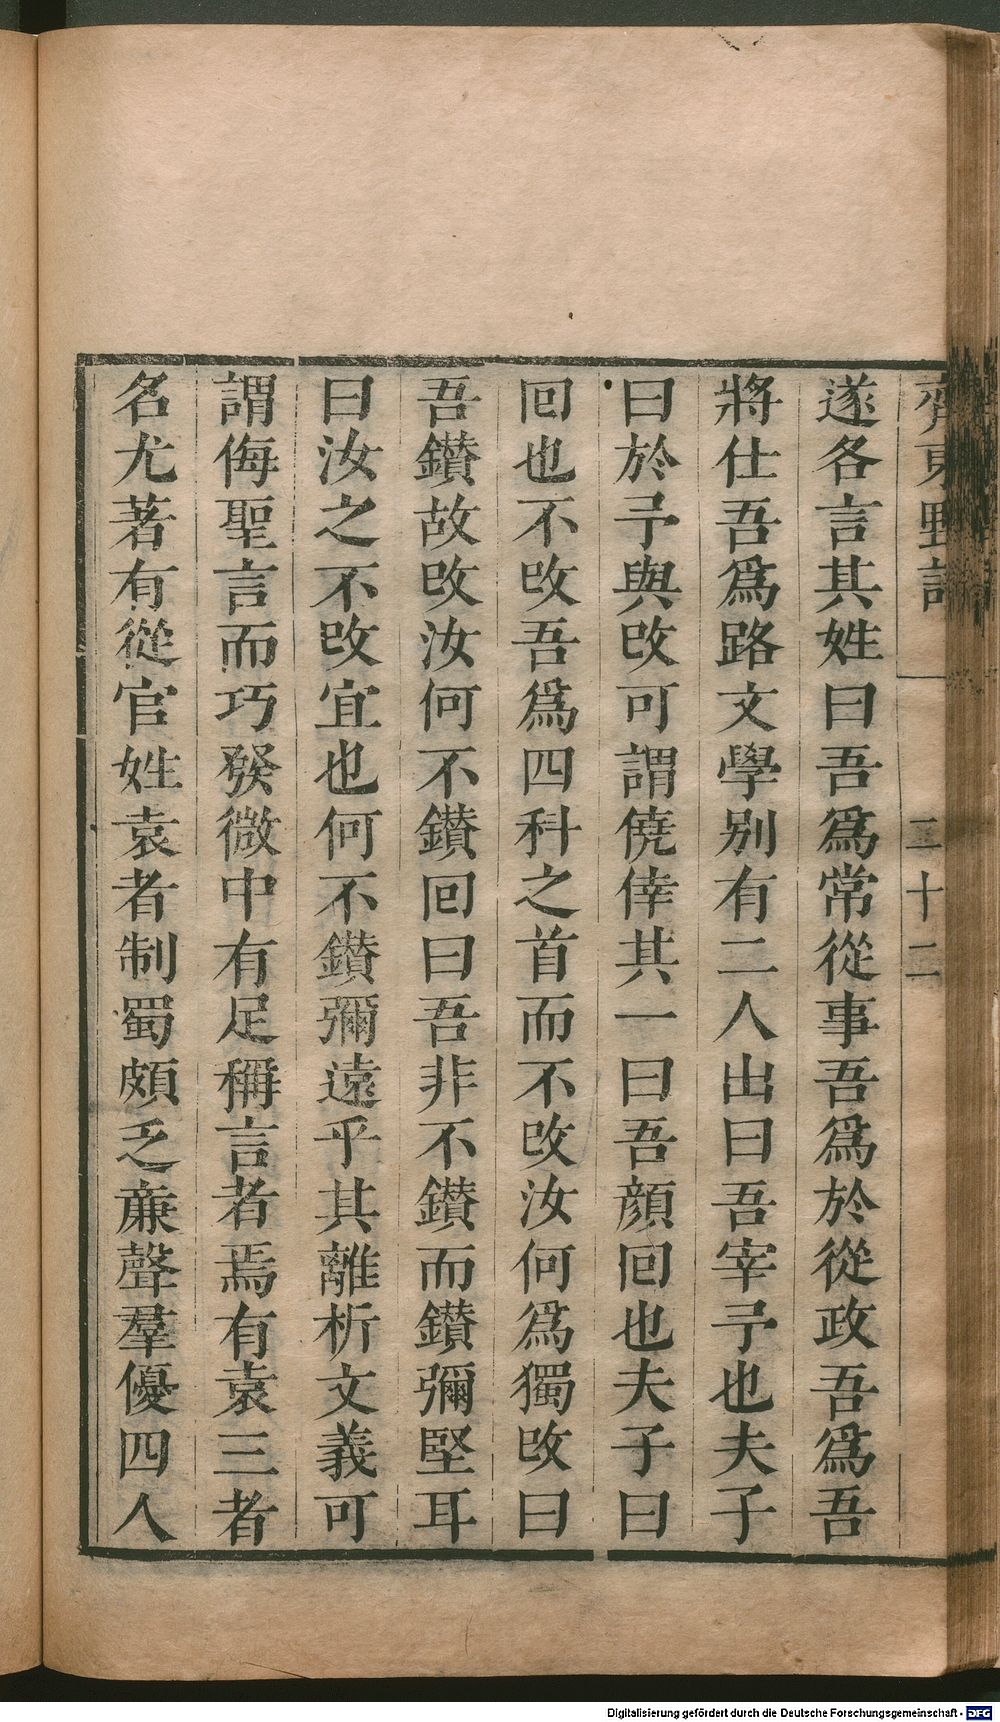 齊東野語
二十二
遂各言其姓曰吾爲常從事吾爲於從政吾爲吾
將仕吾爲路文學别有二人出曰吾宰予也夫子
曰於予與改可謂僥倖其一曰吾顔回也夫子曰
回也不改吾爲四科之首而不改汝何爲獨改曰
吾鑚故改汝何不鑚回曰吾非不鑚而鑚彌堅耳
曰汝之不改宜也何不鑚彌遠乎其離析文義可
謂侮聖言而巧發微中有足稱言者焉有袁三者
名尤著有從官姓袁者制蜀頗乏廉聲羣優四人
Digitalisierung gefördert durch die Deutsche Forschungsgemeinschaft - DFG